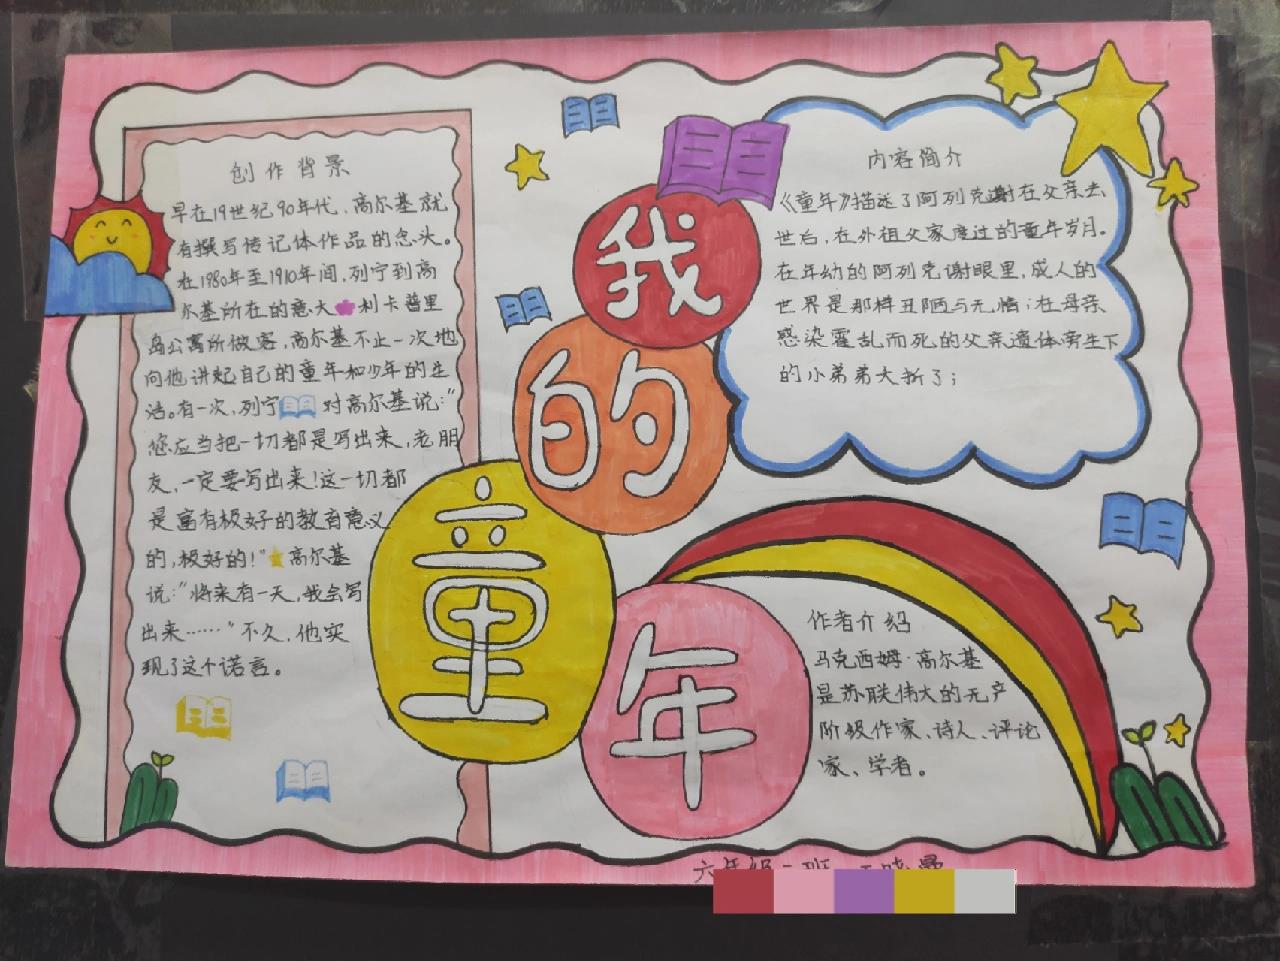 创作背景
早在19世纪90年代，高尔基就
有撰写传记体作品的念头。
在1980年至1910年间，列宁到高
尔基所在的意大利卡普里
岛公寓所做客，高尔基不止一次地
向他讲起自己的童年和少年的生
活。有一次，列宁对高尔基说：“
您应当把一切都是写出来，老朋
友，一定要写出来！这一切都
是富有极好的教育意义
的，极好的！”高尔基
说：“将来有一天，我会写
出来……”不久，他实
现了这个诺言。
我的童年
内容简介
《童年》描述了阿列克谢在父亲去
世后，在外祖父家度过的童年岁月。
在年幼的阿列克谢眼里，成人的
世界是那样丑陋与无情；在母亲
感染霍乱而死的父亲遗体旁生下
的小弟弟夭折了；
作者介绍
马克西姆·高尔基
是苏联伟大的无产
阶级作家、诗人、评论
家、学者。
六年级二班